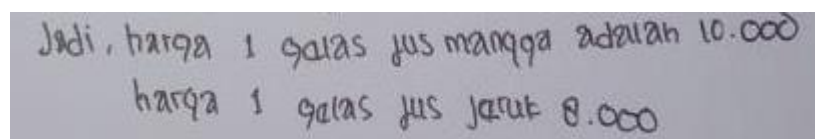 Jadi, harga 1 galas jus mangga adalah 10.000
harga 1 galas jus jaruk 8.000